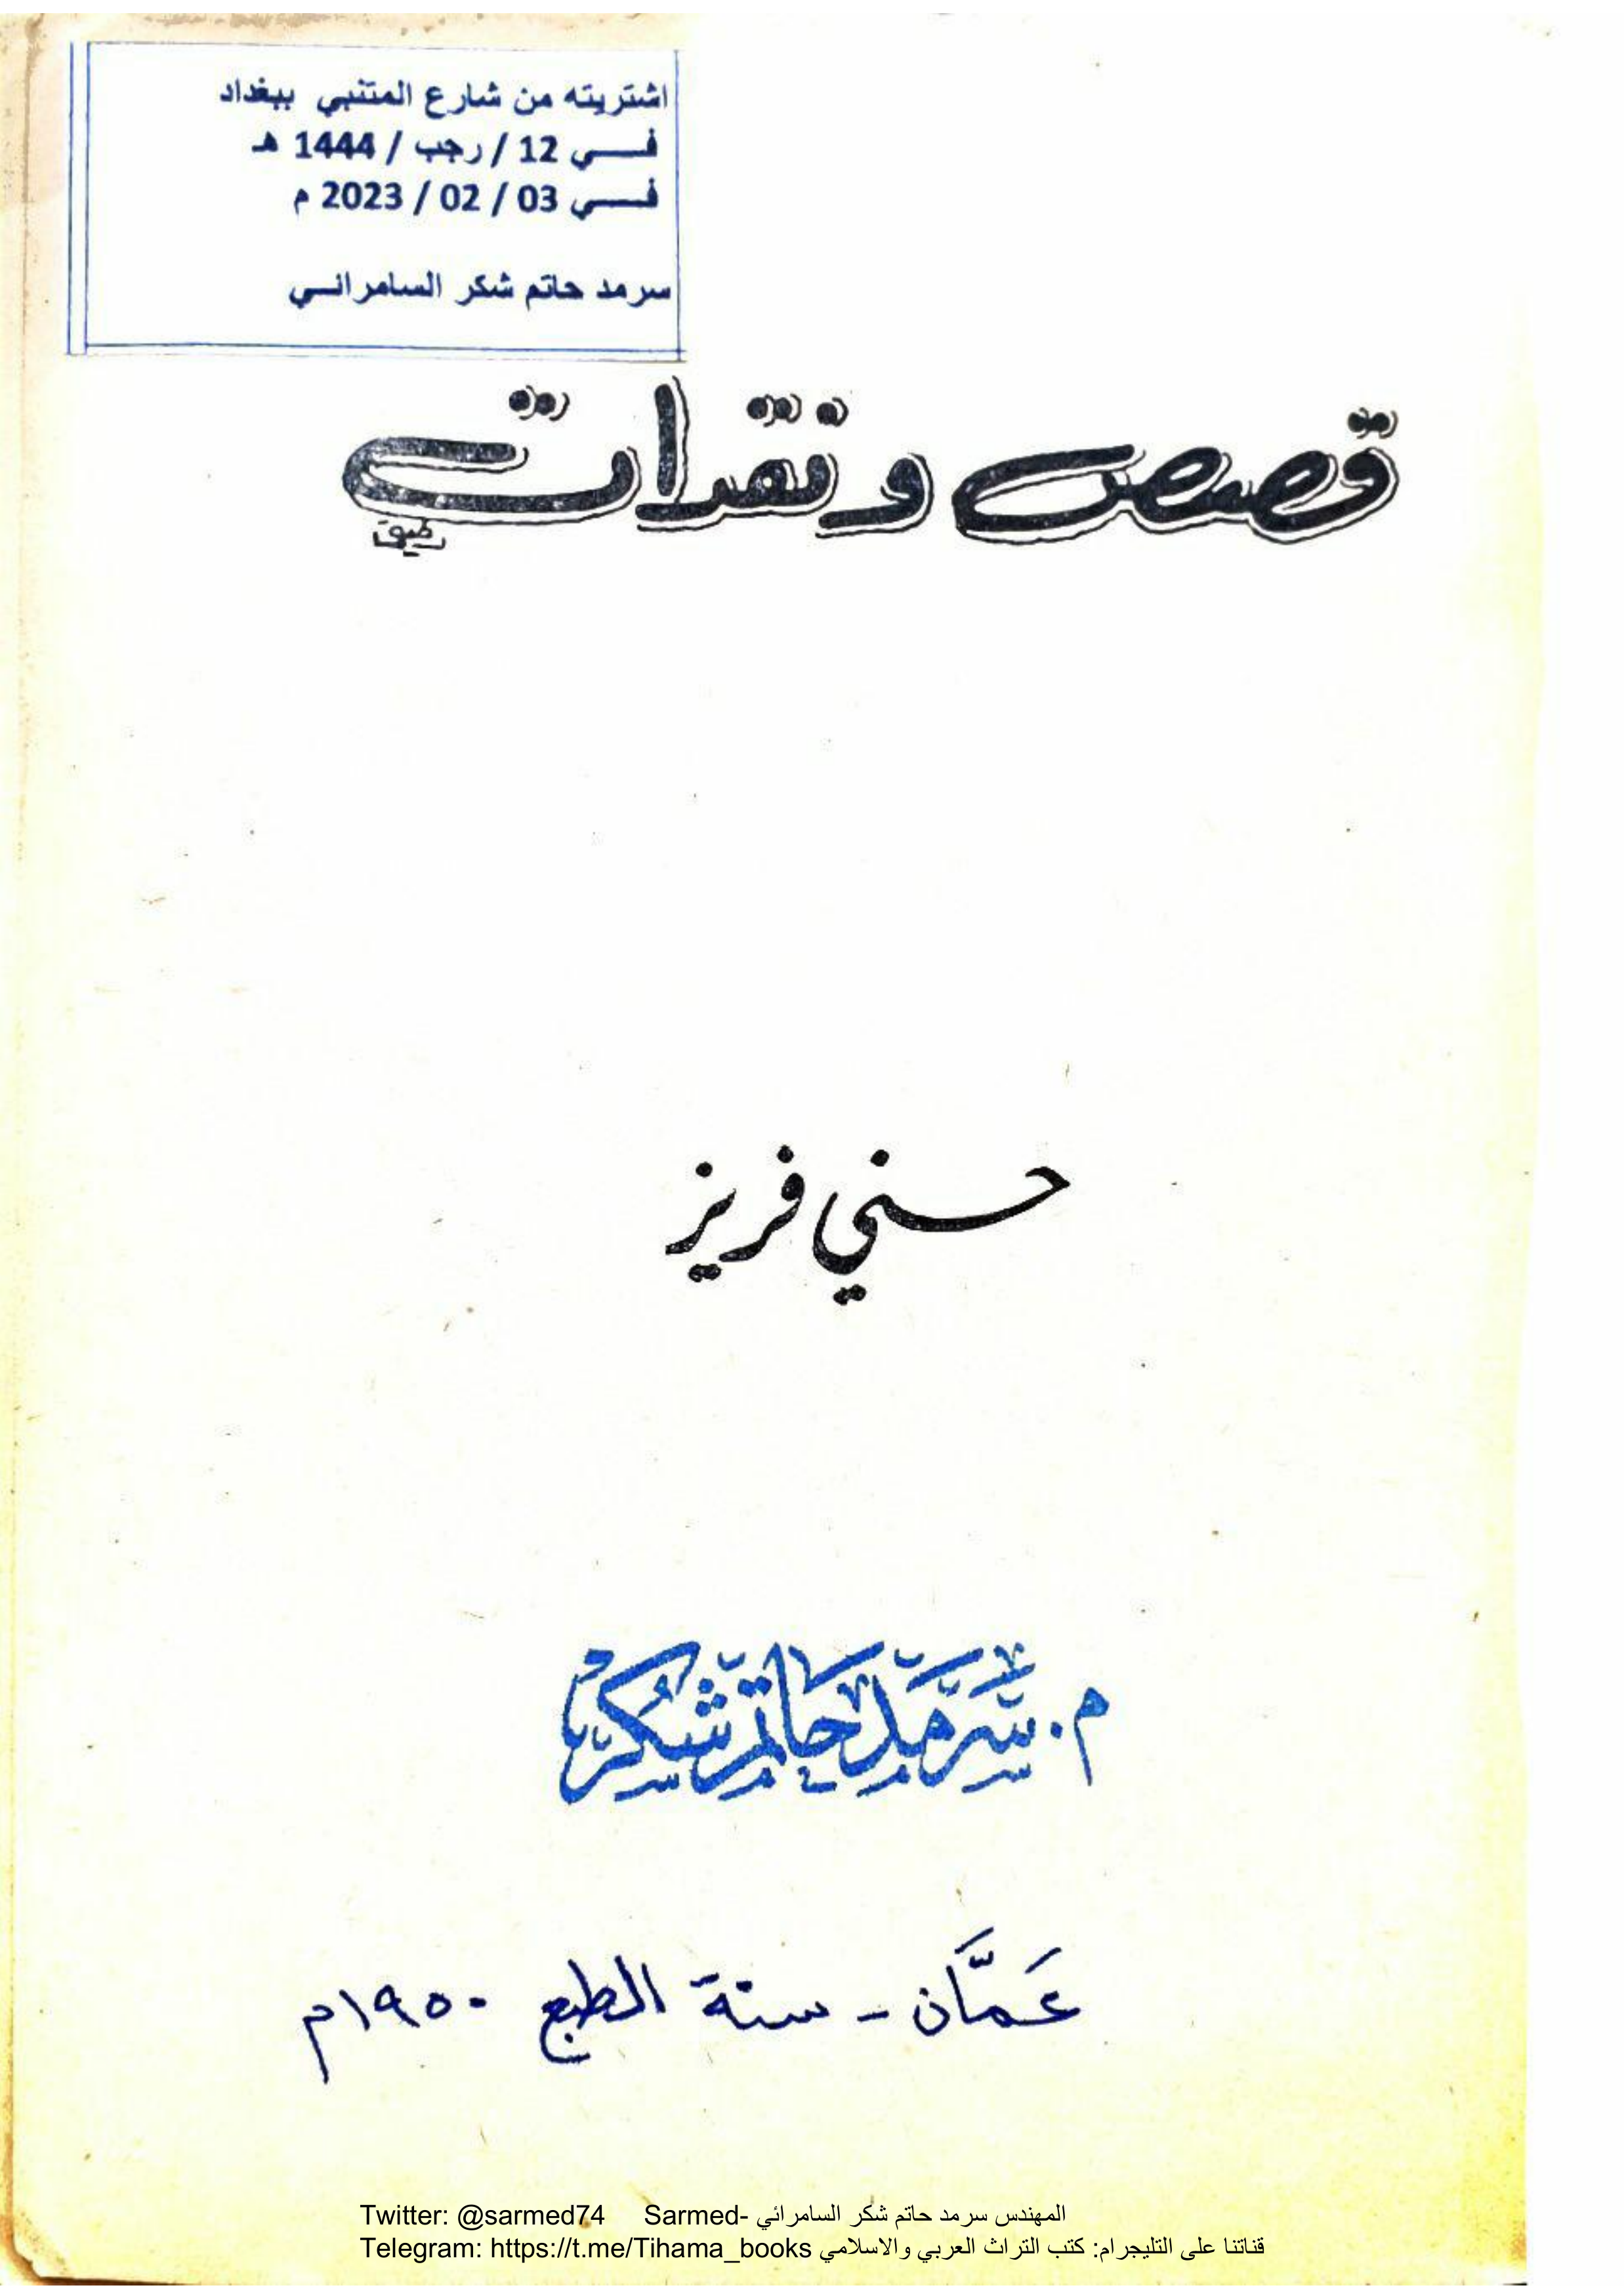 اشتريته من شارع المتنبي ببغداد
في 12 / رجب / 1444 هـ
في 03 / 02 / 2023 م
سرمد حاتم شكر السامرائي
قصص ونقدات
حسني فريز
م. سَرمَد حَاتم شُكر
عَمَّان - سنة الطبع ١٩٥٠م
Twitter: @sarmed74 Sarmed- المهندس سرمد حاتم شكر السامرائي
Telegram: https://t.me/Tihama_books قناتنا على التليجرام: كتب التراث العربي والاسلامي